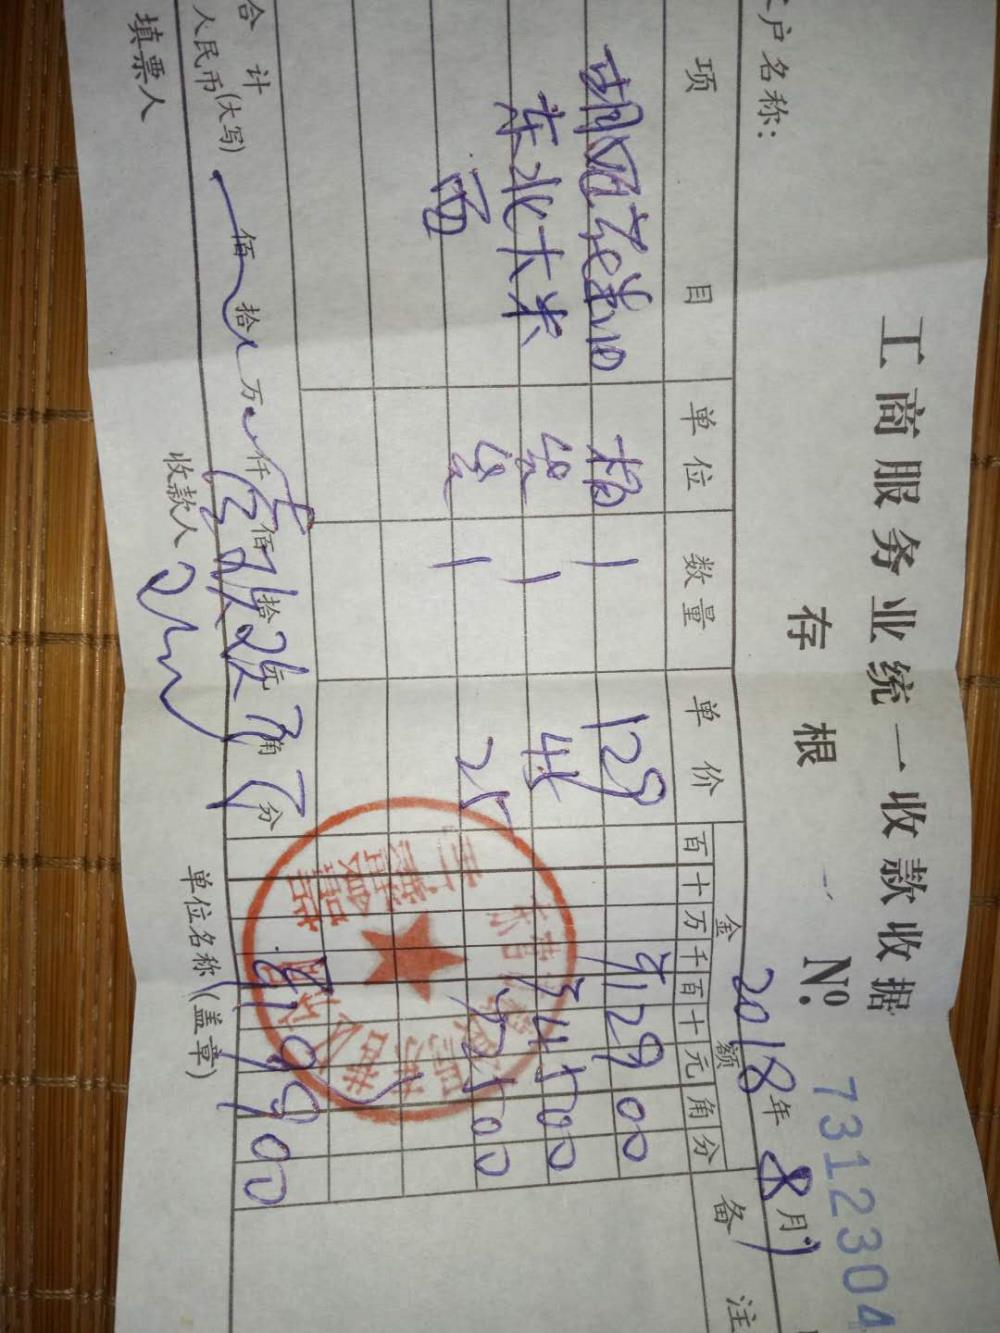 工商服务业统一收款收据
存根 № 7312304
户名称: 2018年8月
项目 单位 数量 单价 金额 备注
百 十 万 千 百 十 元 角 分
胡姬花 1 129 ¥12900
东北大米 袋 1 45 ¥4500
面 袋 1 25 ¥2500
合计
人民币(大写) 佰 拾 万 仟 壹佰 玖拾 玖元 角 分 ¥19900
填票人 收款人 单位名称(盖章)